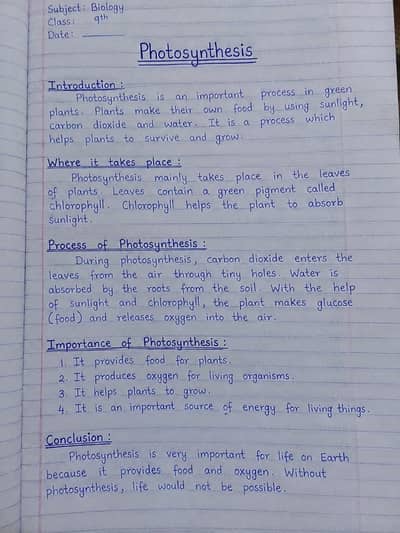 Subject: Biology
Class: 9th
Date:
Photosynthesis
Introduction:
Photosynthesis is an important process in green
plants. Plants make their own food by using sunlight,
carbon dioxide and water. It is a process which
helps plants to survive and grow.
Where it takes place:
Photosynthesis mainly takes place in the leaves
of plants. Leaves contain a green pigment called
chlorophyll. Chlorophyll helps the plant to absorb
sunlight.
Process of Photosynthesis:
During photosynthesis, carbon dioxide enters the
leaves from the air through tiny holes. Water is
absorbed by the roots from the soil. With the help
of sunlight and chlorophyll, the plant makes glucose
(food) and releases oxygen into the air.
Importance of Photosynthesis:
1. It provides food for plants.
2. It produces oxygen for living organisms.
3. It helps plants to grow.
4. It is an important source of energy for living things.
Conclusion:
Photosynthesis is very important for life on Earth
because it provides food and oxygen. Without
photosynthesis, life would not be possible.